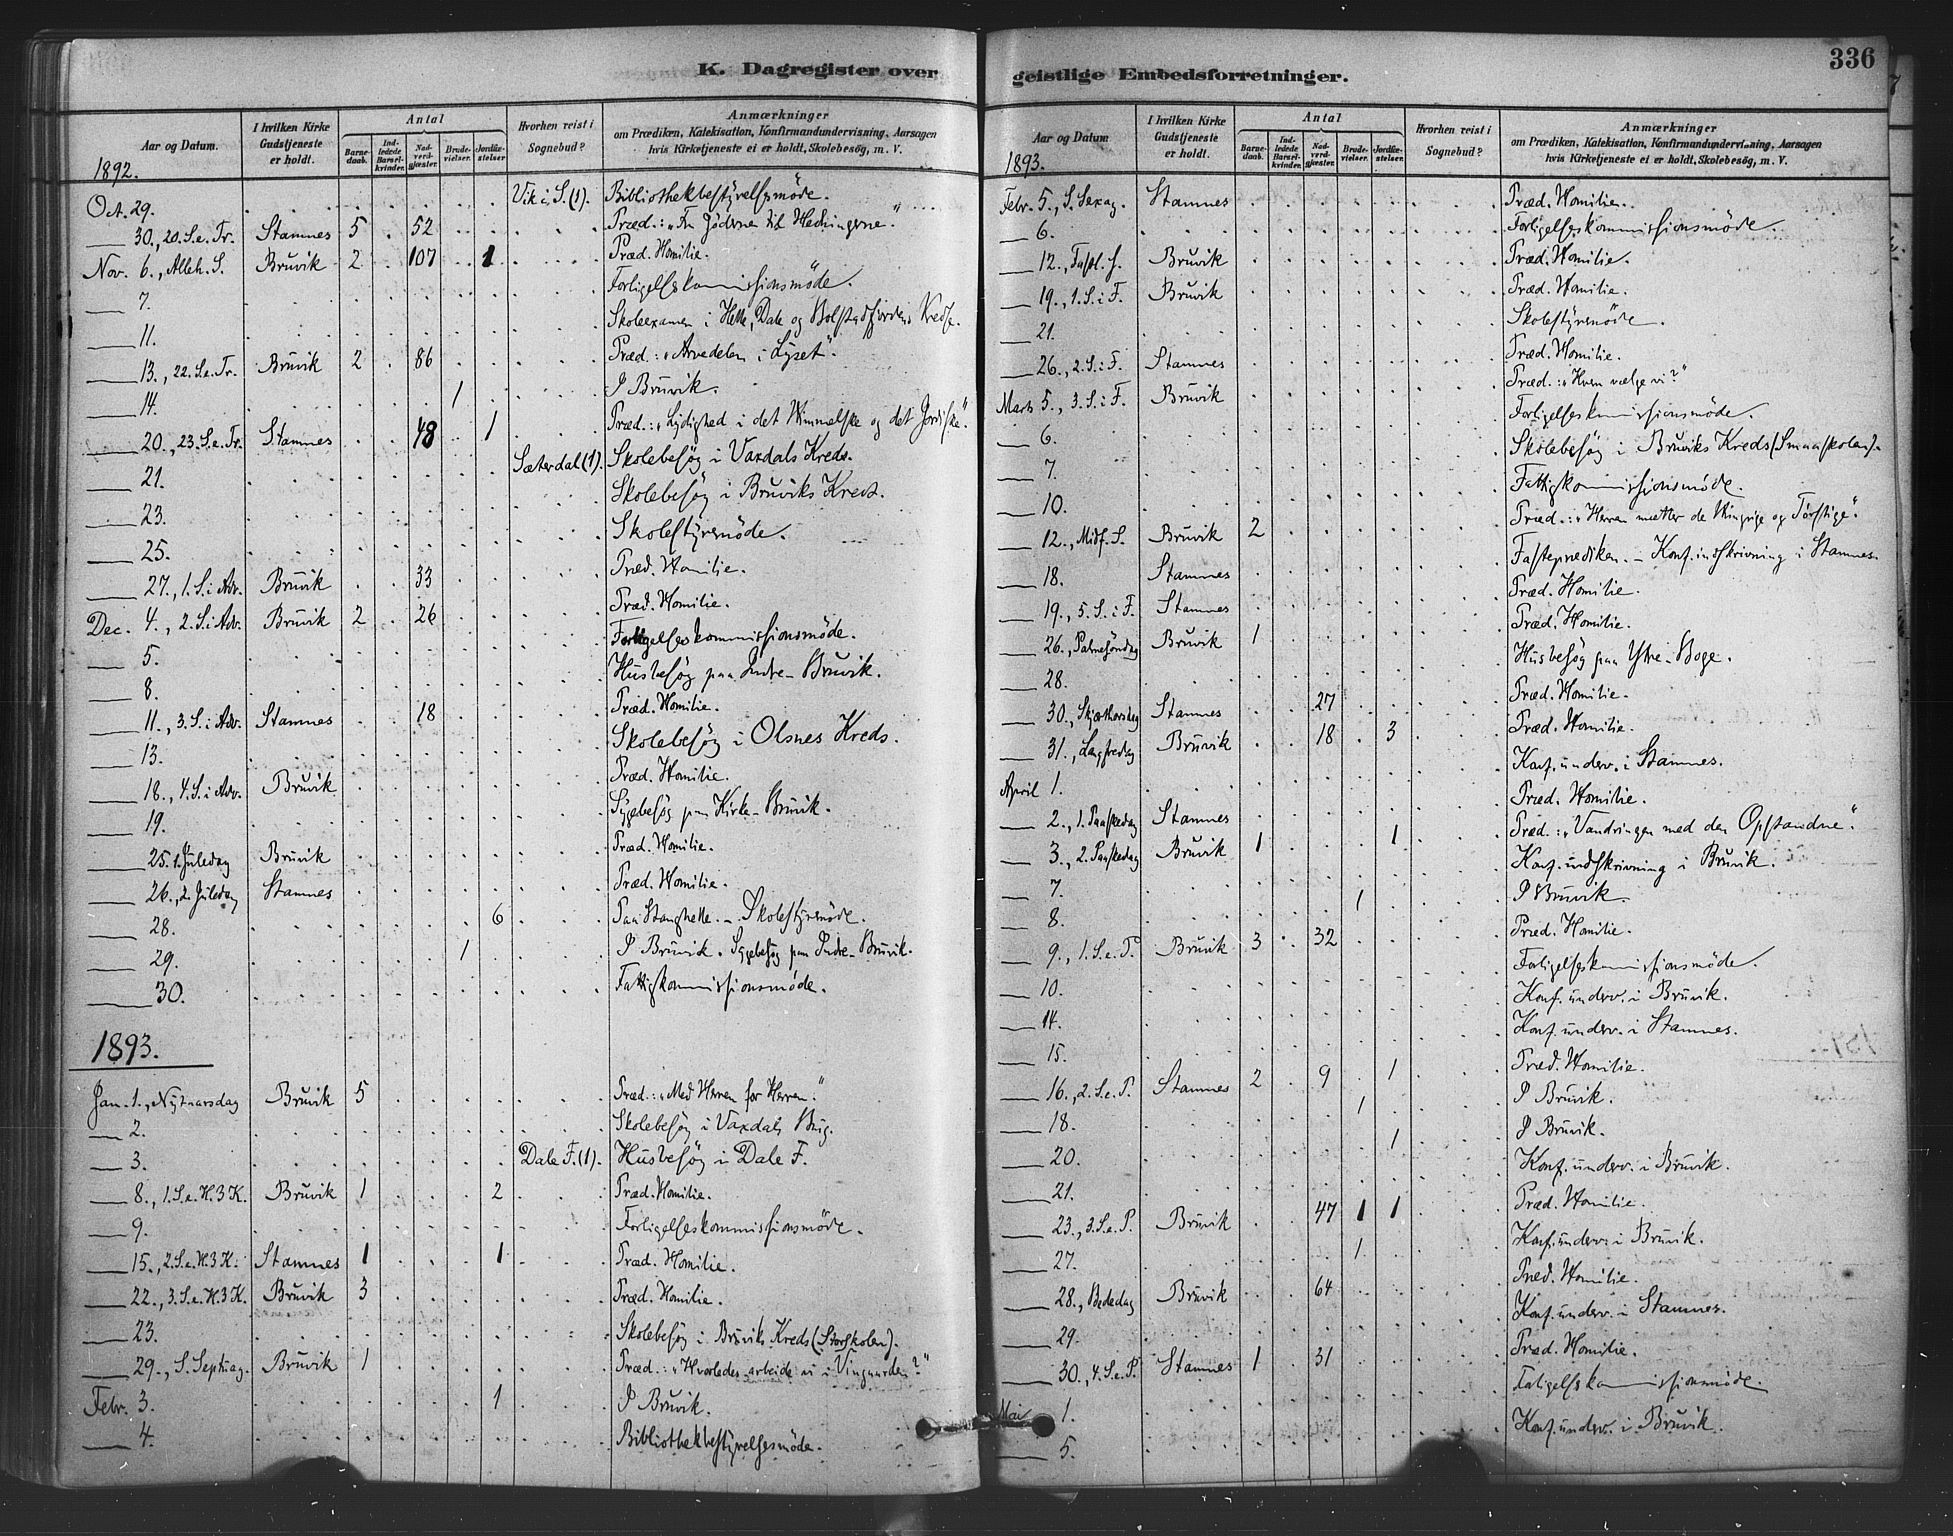 K. Dagregister over geistlige Embedsforretninger. 336
Aar og Datum. | I hvilken Kirke Gudstjeneste er holdt. | Antal: Barnedaab. | Indledede Barselkvinder. | Nadverdgjæster. | Brudevielser. | Jordfæstelser. | Hvorhen reist i Sognebud? | Anmærkninger om Prædiken, Katekisation, Konfirmandundervisning, Aarsagen hvis Kirketjeneste ei er holdt, Skolebesøg, m. V.
1892.
Oct. 29. Vik i S. (1). Bibliothekbestyrelsesmøde.
30., 20. S. e. Tr. Stamnes 5 52 Præd.: „Fra Jøderne til Hedningerne."
Nov. 6., Alleh. S. Bruvik 2 107 1 Præd. Homilie.
7. Forligelseskommissionsmøde.
11. Skoleexamen i Helle, Dale og Bolstadfjordens Kredse.
13., 22. S. e. Tr. Bruvik 2 86 Præd.: „Arvedelen i Lyset".
14. 1 I Bruvik.
20., 23. S. e. Tr. Stamnes 48 1 Præd.: „Lydighed i det Himmelske og det Jordiske."
21. Sæterdal (1). Skolebesøg i Vaxdals Kreds.
23. Skolebesøg i Bruviks Kreds.
25. Skolestyremøde.
27., 1. S. i Adv. Bruvik 33 Præd. Homilie.
Dec. 4., 2. S. i Adv. Bruvik 2 26 Præd. Homilie.
5. Forligelseskommissionsmøde.
8. Husbesøg paa Indre-Bruvik.
11., 3. S. i Adv. Stamnes 18 Præd. Homilie.
13. Skolebesøg i Olsnes Kreds.
18., 4. S. i Adv. Bruvik Præd. Homilie.
19. Sygebesøg paa Kirke-Bruvik.
25. 1. Juledag Bruvik Præd. Homilie.
26., 2. Juledag Stamnes Præd. Homilie.
28. 6 Paa Stanghelle. – Skolestyremøde.
29. 1 I Bruvik. Sygebesøg paa Indre-Bruvik.
30. Fattigkommissionsmøde.
1893.
Jan. 1., Nytaarsdag Bruvik 5 Præd.: „Med Herren for Herren".
2. Skolebesøg i Vaxdals Brug.
3. Dale F. (1). Husbesøg i Dale F.
8., 1. S. e. H. 3 K. Bruvik 1 2 Præd. Homilie.
9. Forligelseskommissionsmøde.
15., 2. S. e. H. 3 K. Stamnes 1 1 Præd. Homilie.
22., 3. S. e. H. 3 K. Bruvik 3 Præd. Homilie.
23. Skolebesøg i Bruviks Kreds (Storskolen).
29., S. Septuag. Bruvik 1 Præd.: „Hvorledes arbeide vi i Vingaarden?"
Febr. 3. 1 I Bruvik.
4. Bibliothekbestyrelsesmøde.
Aar og Datum | I hvilken Kirke Gudstjeneste er holdt. | Antal: Barnedaab. | Indledede Barselkvinder. | Nadverdgjæster. | Brudevielser. | Jordfæstelser. | Hvorhen reist i Sognebud? | Anmærkninger om Prædiken, Katekisation, Konfirmandundervisning, Aarsagen hvis Kirketjeneste ei er holdt, Skolebesøg, m. V.
1893.
Febr. 5., S. Sexag. Stamnes Præd. Homilie.
6. Forligelseskommissionsmøde.
12., Fastel. S. Bruvik Præd. Homilie.
19., 1. S. i F. Bruvik Præd. Homilie.
21. Skolestyremøde.
26., 2. S. i F. Stamnes Præd. Homilie.
Marts 5., 3. S. i F. Bruvik Præd.: „Hvem vælge vi?"
6. Forligelseskommissionsmøde.
7. Skolebesøg i Bruviks Kreds (Smaaskolen).
10. Fattigkommissionsmøde.
12., Midf. S. Bruvik 2 Præd.: „Herren mætter de Hungrige og Tørstige".
18. Stamnes Fasteprædiken. – Konf.indskrivning i Stamnes.
19., 5. S. i F. Stamnes Præd. Homilie.
26., Palmesøndag Bruvik 1 Præd. Homilie.
28. Husbesøg paa Ytre-Boge.
30., Skjærthorsdag Stamnes 27 Præd. Homilie.
31., Langfredag Bruvik 18 3 Præd. Homilie.
April 1. Konf.underv. i Stamnes.
2., 1. Paaskedag Stamnes Præd. Homilie.
3., 2. Paaskedag Bruvik 1 1 Præd.: „Vandringen med den Opstandne".
7. Konf.indskrivning i Bruvik.
8. 1 I Bruvik.
9., 1. S. e. P. Bruvik 3 32 Præd. Homilie.
10. Forligelseskommissionsmøde.
14. Konf.underv. i Bruvik.
15. Konf.underv. i Stamnes.
16., 2. S. e. P. Stamnes 2 9 1 Præd. Homilie.
18. 1 I Bruvik.
20. 1 I Bruvik.
21. Konf.underv. i Bruvik.
23., 3. S. e. P. Bruvik 47 1 1 Præd. Homilie.
27. 1 Konf.underv. i Bruvik.
28., Bededag Bruvik 64 Præd. Homilie.
29. Konf.underv. i Stamnes.
30., 4. S. e. P. Stamnes 1 31 Præd. Homilie.
Mai 1. Forligelseskommissionsmøde.
5. Konf.underv. i Bruvik.